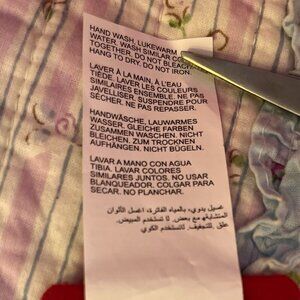 HAND WASH, LUKEWARM
WATER, WASH SIMILAR CO
TOGETHER. DO NOT BLEACH
HANG TO DRY. DO NOT IRON.
LAVER À LA MAIN, À L'EAU
TIÈDE. LAVER LES COULEURS
SIMILAIRES ENSEMBLE. NE PAS
JAVELLISER. SUSPENDRE POUR
SÉCHER. NE PAS REPASSER.
HANDWÄSCHE, LAUWARMES
WASSER. GLEICHE FARBEN
ZUSAMMEN WASCHEN. NICHT
BLEICHEN. ZUM TROCKNEN
AUFHÄNGEN. NICHT BÜGELN.
LAVAR A MANO CON AGUA
TIBIA. LAVAR COLORES
SIMILARES JUNTOS. NO USAR
BLANQUEADOR. COLGAR PARA
SECAR. NO PLANCHAR.
غسيل يدوي، بالمياه الفاتر، اغسل الألوان
المتشابهة مع بعض. لا تستخدم المبيض.
علق للتجفيف. لاتستخدم الكوي